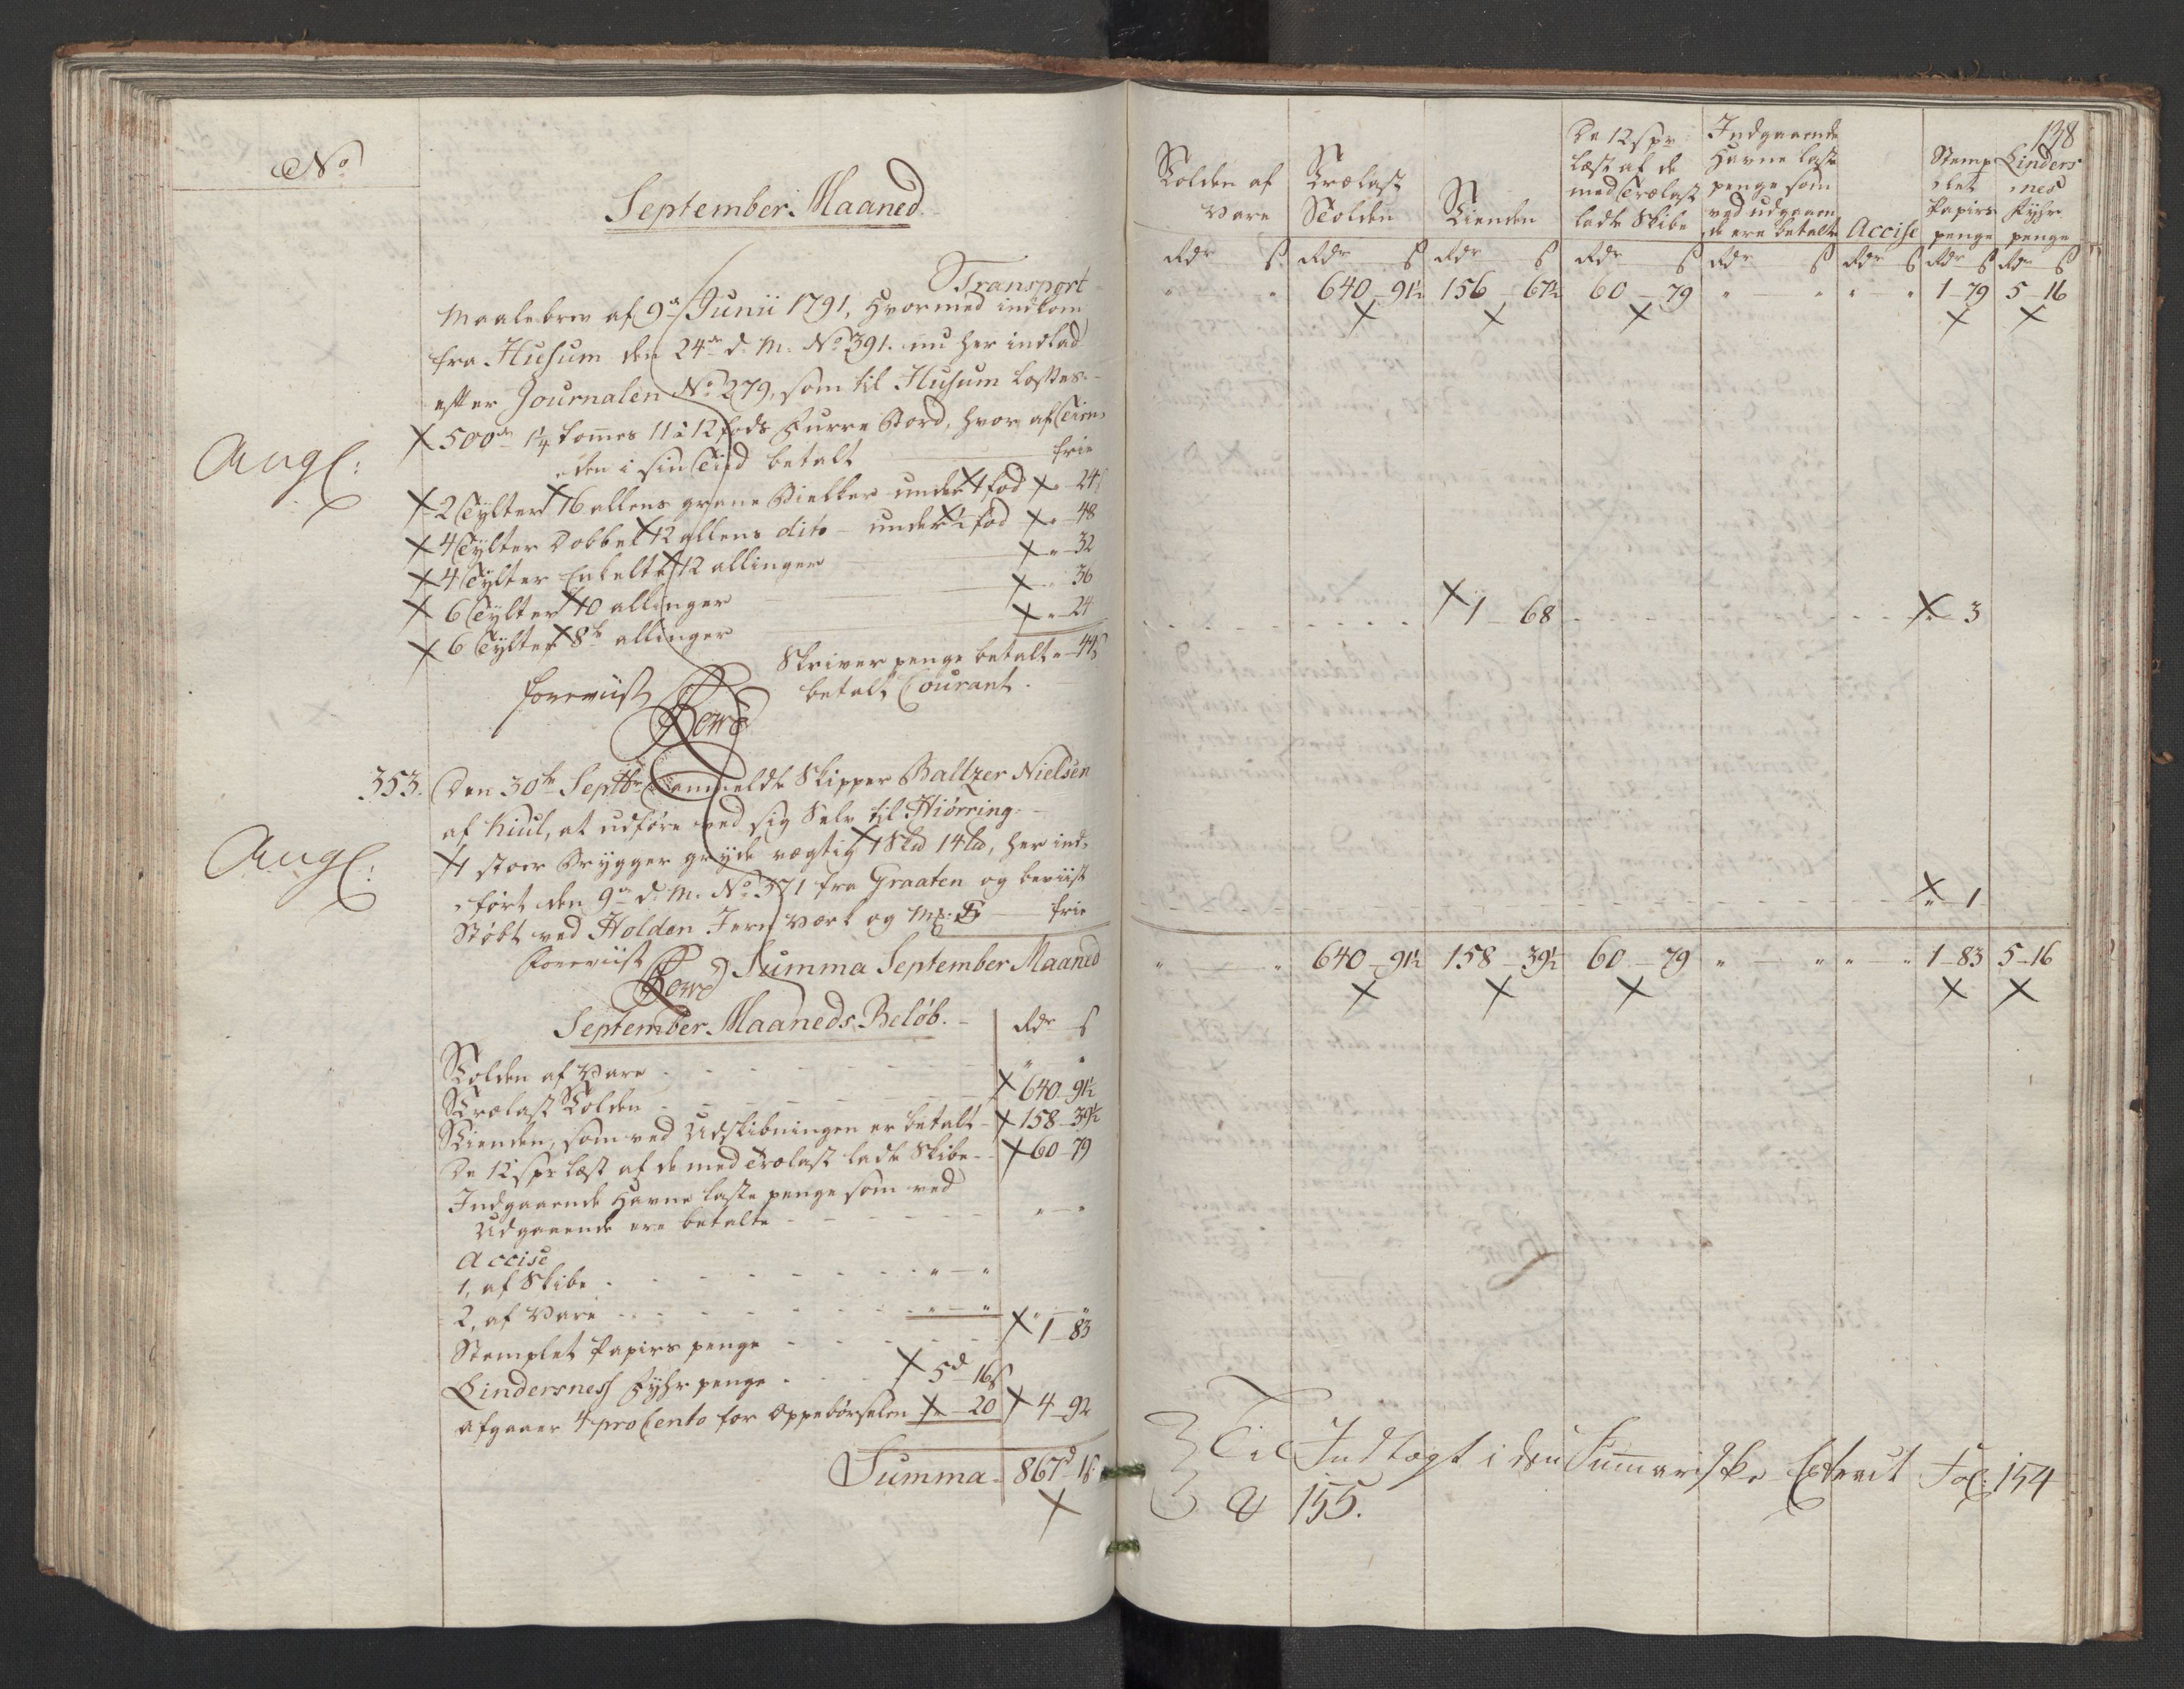 No
September Maaned
Transport
Maalebrev af 9de Junii 1791, hvormed indkom
fra Husum den 24de d. M. No 391. nu her indlad
efter Journalen No 279, som til Husum lastes.
500de 1¼ tommes 11 à 12 fods Furre Bord, hvor af Tien-
den i sin Tiid betalt frie
Angl:
2 Tylter 16 allens grane Bielker under 1 fod " 24
4 Tylter Dobbelt 12 allens dito under ½ fod " 48
4 Tylter Enkelte 12 allinger " 32
6 Tylter 10 allinger " 36
6 Tylter 8te allinger " 24
Skriver penge betalt " 44
betalt Courant.
foreviist
353. Den 30te Septbr anmeldte Skipper Baltzer Nielsen
af Kiul, at udföre med sig Selv til Hiörring.
1 stoer Brygger gryde vægtig 1 Skd 14 Ld, her ind-
ført den 9de d. M. No 371 fra Graaten og beviist
Støbt ved Holden Jern Værk og frie
Angl:
foreviist
Summa September Maaned
September Maaneds Beløb. Rdr s
Tolden af Vare " "
Trælast Tolden 640 91½
Tienden, som ved Udskibningen er betalt 158 39½
De 12 spr læst af de med Trælast ladte Skibe 60 79
Indgaaende Havne laste penge som ved
Udgaaende ere betalte " "
Accise
1, af Skibe " "
2, af Vare " " " "
Stemplet Papirs penge 1 83
Lindersness Fyhr penge 5d 16s
Afgaaer 4 pro Cento for Oppebörselen " 20 4 92
Summa 867d 18
138
Tolden af Vare
Trælast Tolden
Tienden
De 12 spr læst af de med Trælast ladte Skibe
Indgaaende Havne laste penge som ved udgaaende ere betalte
Accise
Stemplet Papirs penge
Lindersnes Fyhr penge
Rdr s Rdr s Rdr s Rdr s Rdr s Rdr s Rdr s Rdr s
" " 640 91½ 156 67½ 60 79 " " " " 1 79 5 16
1 68 " 3
" 1
" " 640 91½ 158 39½ 60 79 " " " " 1 83 5 16
Til Indtægt i den Summariske Extract Fol: 154
& 155.